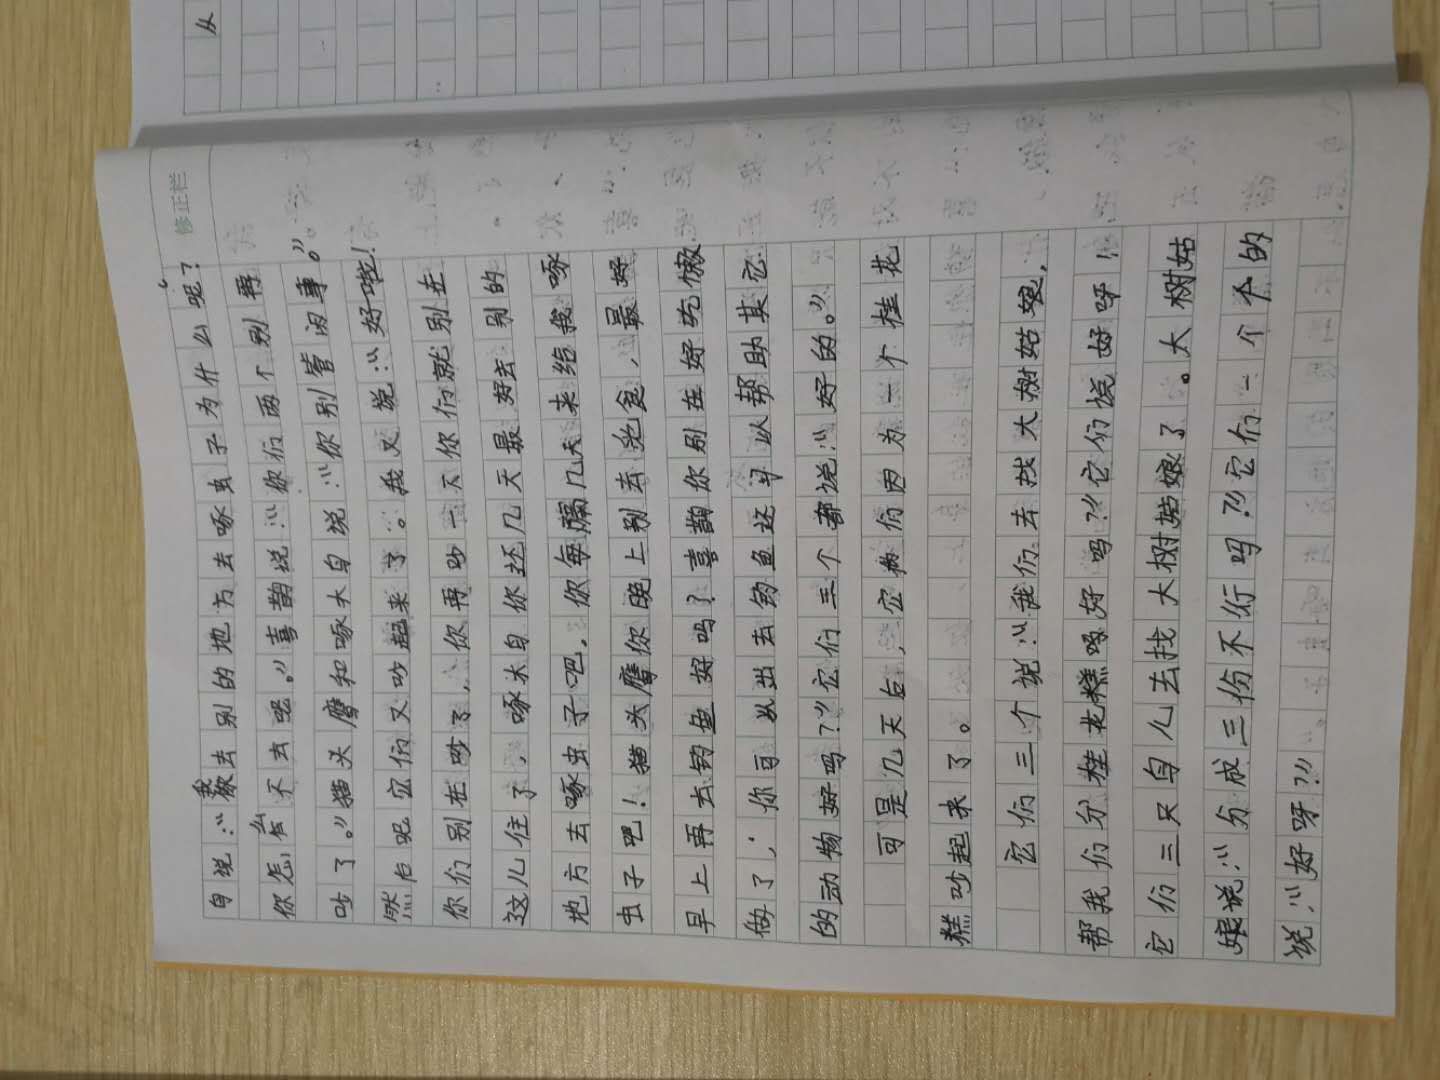 从
修正栏
鸟说:“我去别的地方去啄虫子为什么呢?
你怎么不去呢。”喜鹊说:“你们两个别再
吵了。”猫头鹰和啄木鸟说:“你别管闲事。”
然后呢它们又吵起来了。我又说:“好啦!
你们别在吵了,你再吵一下你们就别在
这儿住了,啄木鸟你还几天最好去别的
地方去啄虫子吧,你每隔几天来给我啄
虫子吧!猫头鹰你晚上别去觅食,最好
早上再去钓鱼好吗?喜鹊你别在好吃懒
做了,你可以出去钓鱼还可以帮助其它
的动物好吗?”它们三个都说:“好的。”
可是几天后,它们因为一个桂花
糕吵起来了。
它们三个说:“我们去找大树姑娘,
帮我们分桂花糕好吗?”它们说好呀!
它们三只鸟么去找大树姑娘了。大树姑
娘说:“分成三份不行吗?”它们一个个的
说:“好呀?”